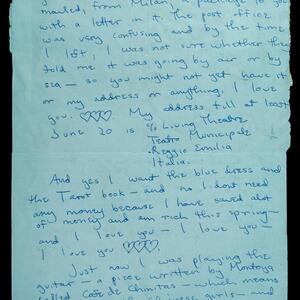 mailed, from Milan, a package to you
with a letter in it. The post office
was very confusing and by the time
I left, I was not sure whether they
told me it was going by air or by
sea — so you might not yet have it
or my address or anything. I love
you. ♡♡♡ My address till at least
June 20 is c/o Living Theatre
Teatro Municipale
Reggio Emilia
Italia.
And yes I want the blue dress and
the Tarot book — and no I dont need
any money because I have saved alot
of money and am rich this spring —
and I love you — I love you —
I love you ♡♡♡♡.
Just now I was playing the
guitar — a piece written by Montoya
called Café de Chinitas — which means
girls — and